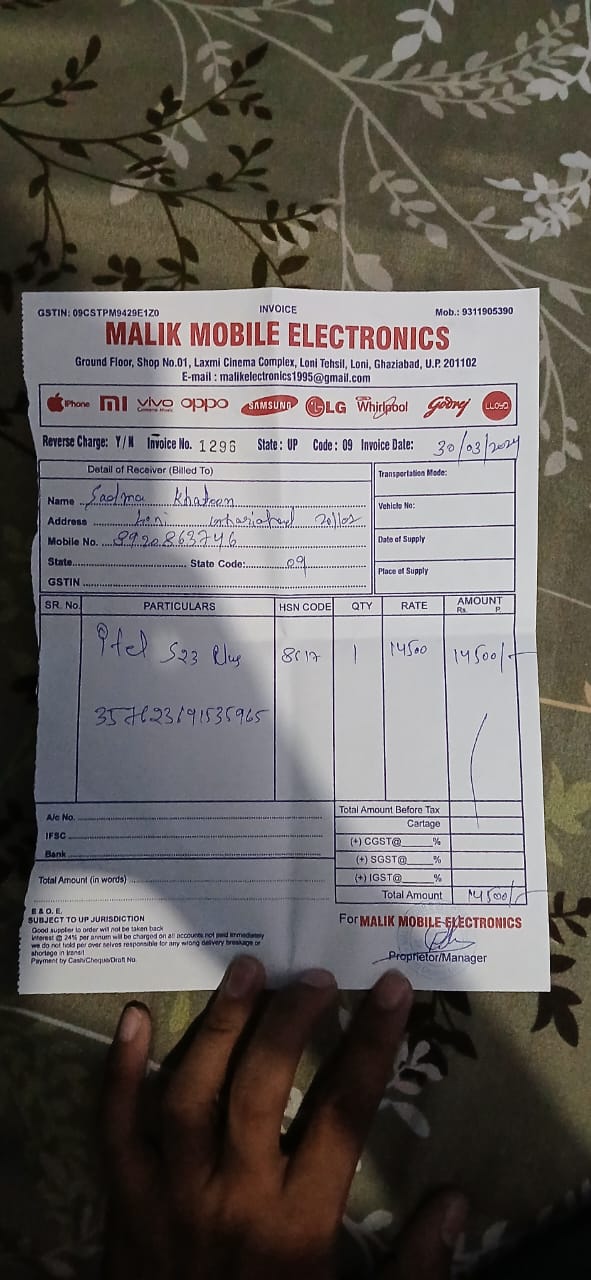 GSTIN: 09CSTPM9429E1Z0 INVOICE Mob.: 9311905390
MALIK MOBILE ELECTRONICS
Ground Floor, Shop No.01, Laxmi Cinema Complex, Loni Tehsil, Loni, Ghaziabad, U.P. 201102
E-mail : malikelectronics1995@gmail.com
iPhone MI vivo oppo SAMSUNG LG Whirlpool Godrej LLOYD
Reverse Charge: Y / N Invoice No. 1296 State: UP Code: 09 Invoice Date: 30/03/2024
Detail of Receiver (Billed To)
Name Khatoon
Address Loni
Mobile No. 8920863746
State State Code: 09
GSTIN
Transportation Mode:
Vehicle No:
Date of Supply
Place of Supply
SR. No. PARTICULARS HSN CODE QTY RATE AMOUNT
Rs. P.
itel S23 Plus 8517 1 14500 14500/-
A/c No.
IFSC
Bank
Total Amount (in words)
Total Amount Before Tax
Cartage
(+) CGST@ %
(+) SGST@ %
(+) IGST@ %
Total Amount 14500/-
E & O. E.
SUBJECT TO UP JURISDICTION
Good supplier to order will not be taken back
Interest @ 24% per annum will be charged on all accounts not paid immediately
we do not hold per over selves responsible for any wrong delivery breakage or
shortage in transit
Payment by Cash/Cheque/Draft No.
For MALIK MOBILE ELECTRONICS
Proprietor/Manager